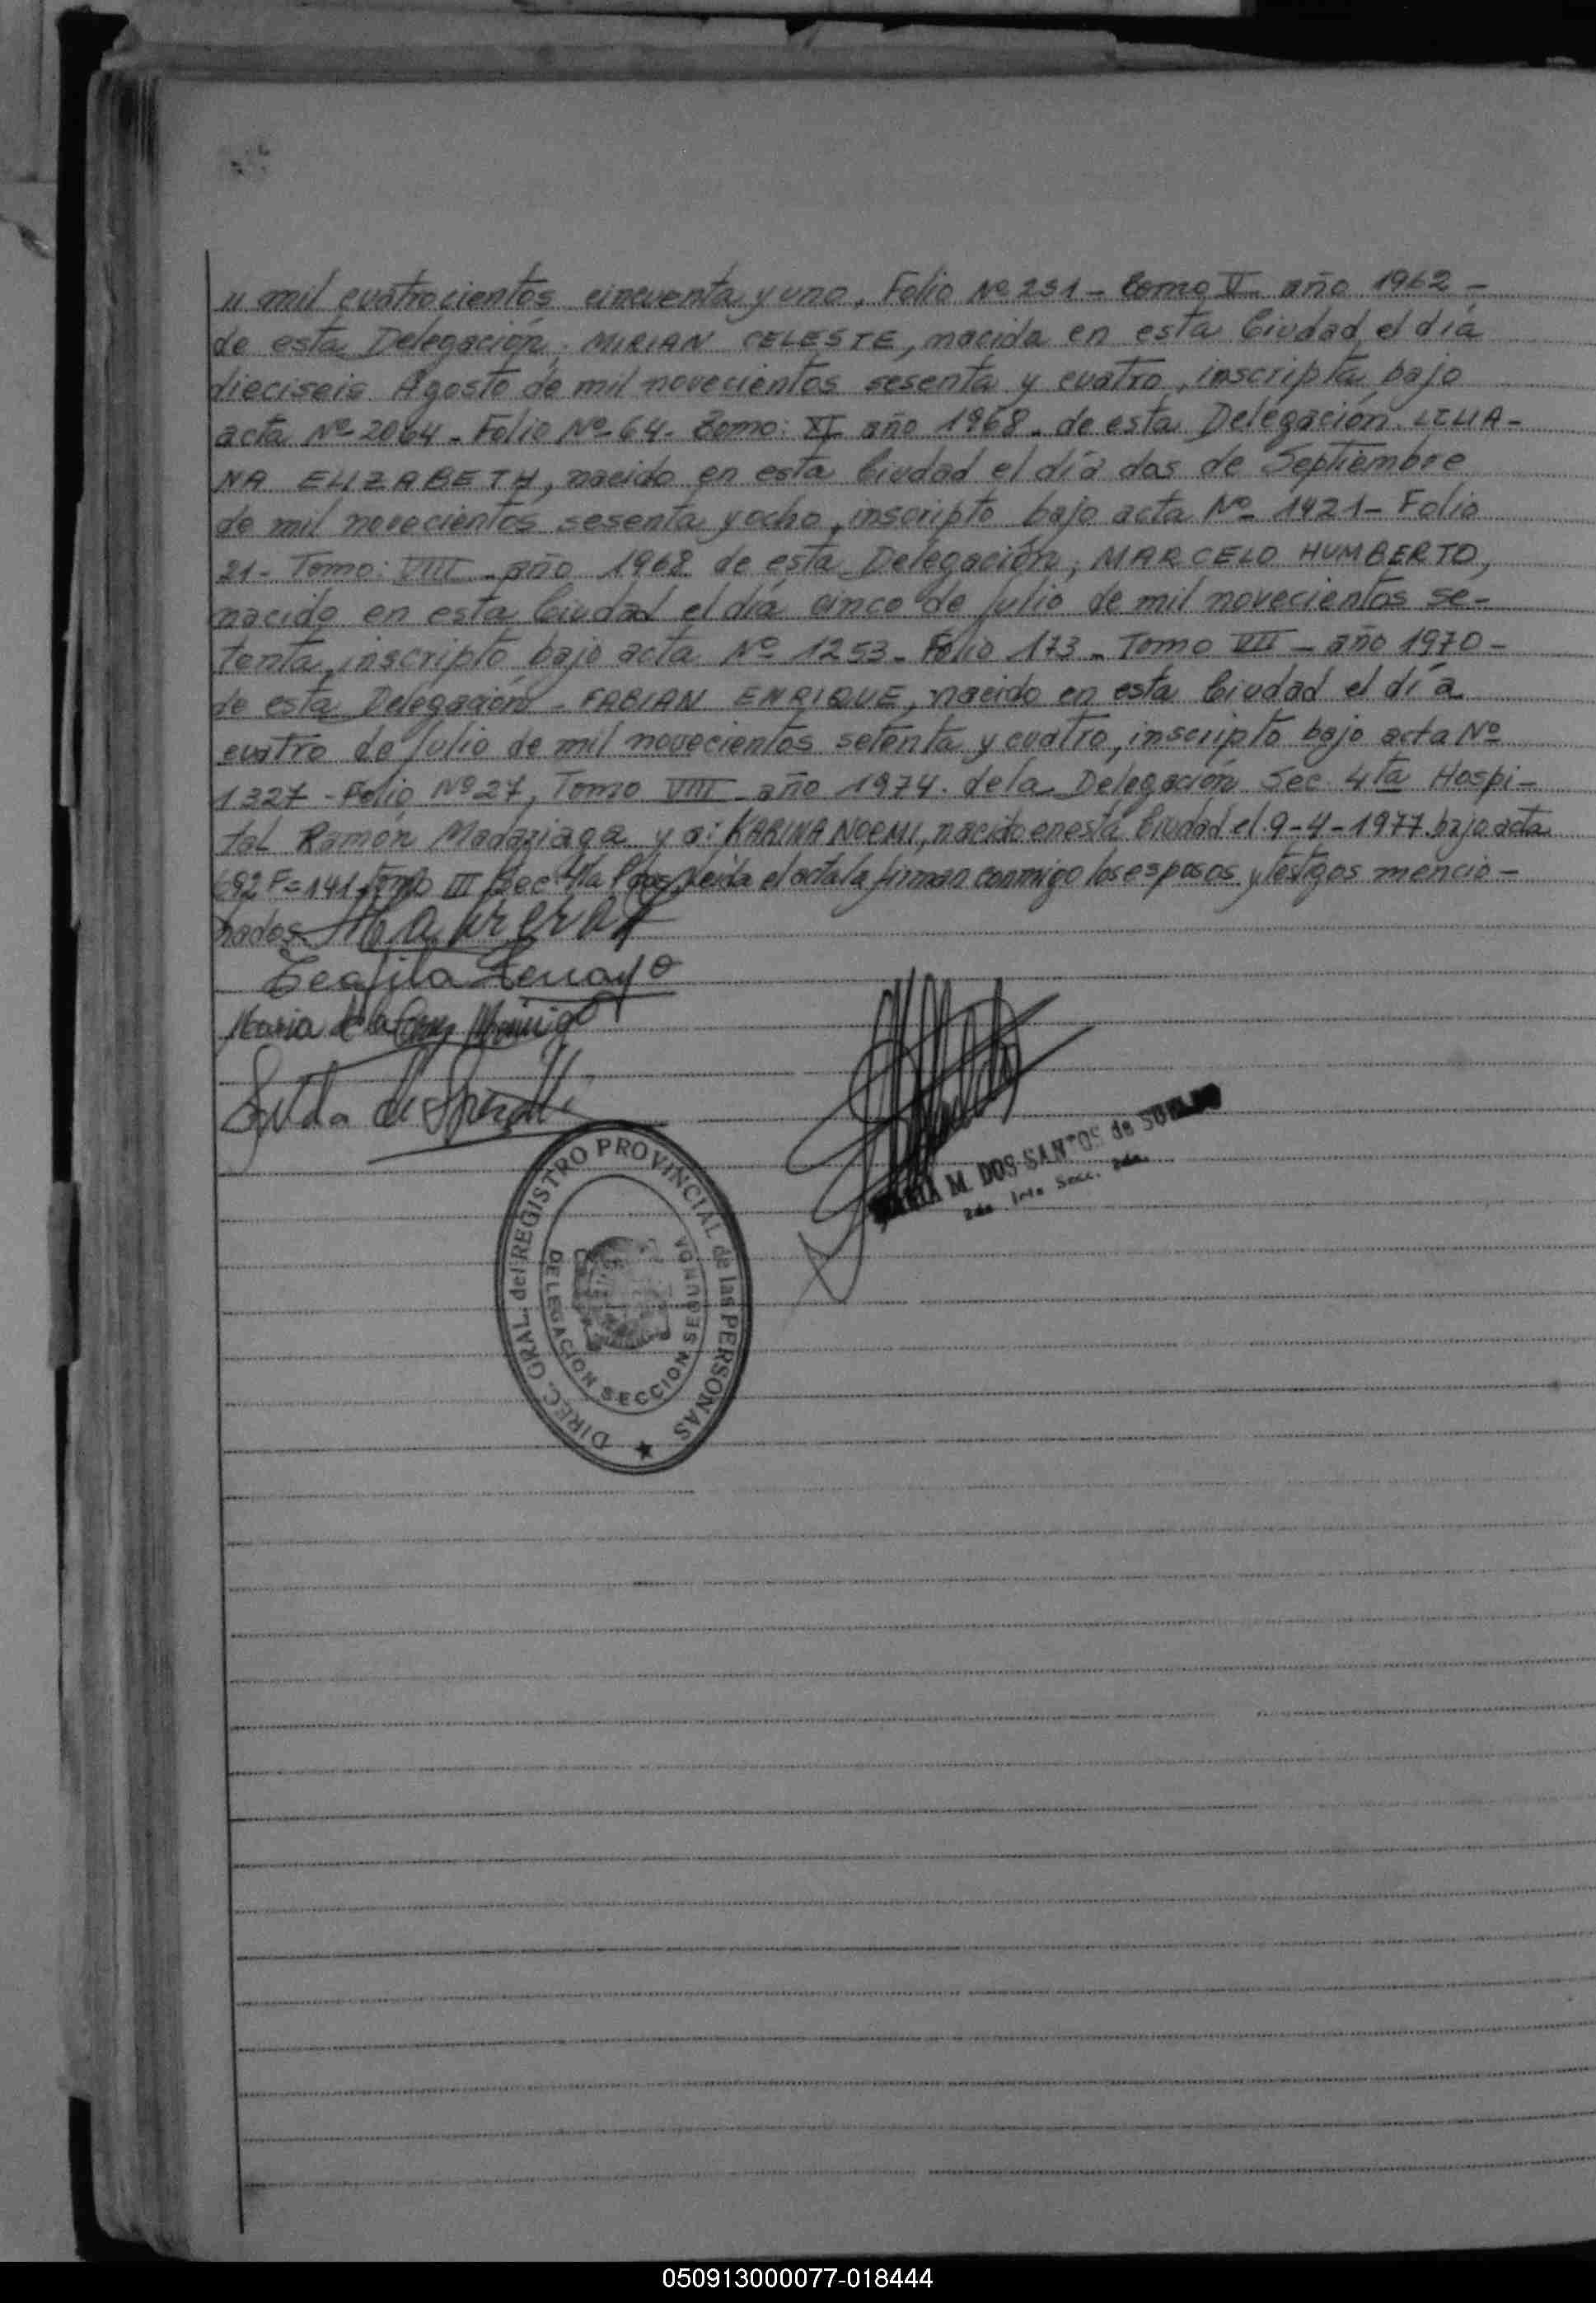 " mil cuatrocientos cincuenta y uno, Folio Nº 251 - Tomo II año 1962 -
de esta Delegación; MIRIAN CELESTE, nacida en esta Ciudad, el día
dieciseis Agosto de mil novecientos sesenta y cuatro, inscripta, bajo
acta Nº 2064 - Folio Nº 64 - Tomo: XI año 1968 - de esta Delegación. LILIA-
NA ELIZABETH, nacido en esta Ciudad el día dos de Septiembre
de mil novecientos sesenta y ocho, inscripto bajo acta Nº 1421 - Folio
21 - Tomo: VIII - año 1968 de esta Delegación, MARCELO HUMBERTO,
nacido en esta Ciudad el día cinco de Julio de mil novecientos se-
tenta, inscripto bajo acta Nº 1253 - Folio 173 - Tomo VII - año 1970 -
de esta Delegación - FABIAN ENRIQUE, nacido en esta Ciudad el día
cuatro de Julio de mil novecientos setenta y cuatro, inscripto bajo acta Nº
1327 - Folio Nº 27, Tomo VIII año 1974. de la Delegación Sec. 4ta Hospi-
tal Ramón Madariaga y a: KARINA NOEMI, nacido en esta Ciudad el 9-4-1977 bajo acta
692 F=141 Tomo III Sec 4ta Leida el acta la firman conmigo los esposos y testigos mencio-
nados
Teofila
Maria de la Cruz
de
MARIA M. DOS SANTOS de
Secc. 2da.
DIREC. GRAL. del REGISTRO PROVINCIAL de las PERSONAS
DELEGACION SECCION SEGUNDA
050913000077-018444